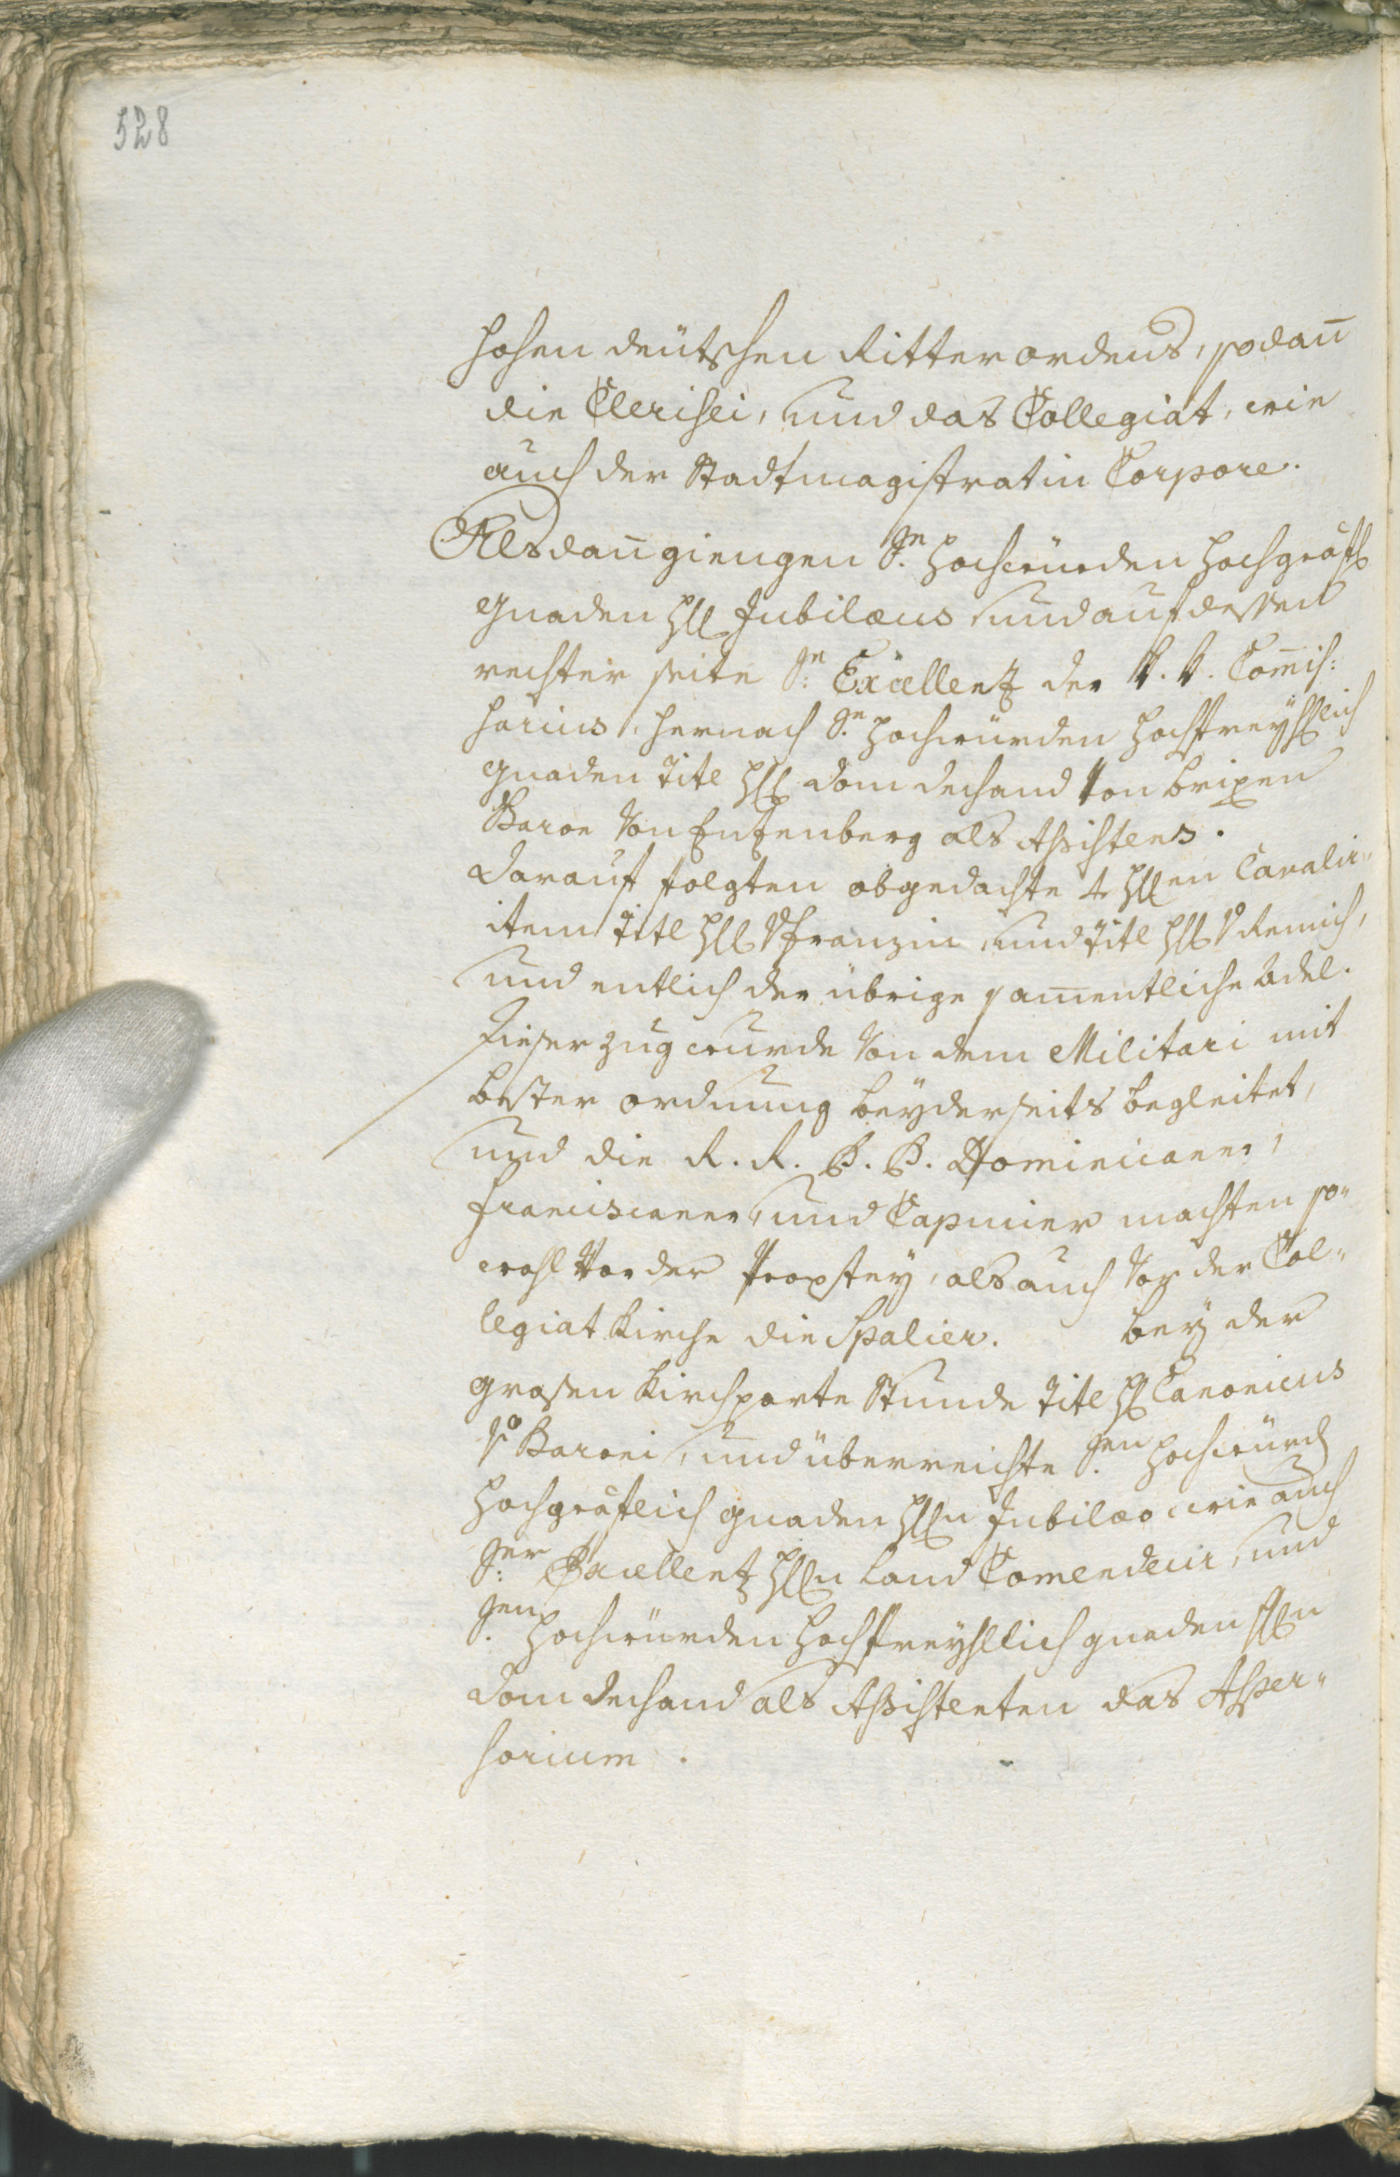 528
hohen deütschen Ritterordens, sodan̄
die Clerisei, und das Collegiat, wie
auch der Stadtmagistrat in Corpore.
Alsdan̄ giengen Sne. Hochwürden Hochgräfl
Gnaden Hl Jubilæus und auf dessen
rechter seite Se: Excellentz der k.k. Com̄is:
sarius, hernach Se. Hochwürden Hochfreyhlich
gnaden Titl Hl Dom dechand von Brixen
Baron von Enzenberg als Assistens.
darauf folgten obgedachte 4 Hllen Cavalir„
item Titl Hll v Franzin, und Titl Hll v Remich,
und entlich der übrige sam̄entliche Adel.
Dieser zug wurde von dem Militari mit
bester ordnung beyderseits begleitet,
und die R. R. P. P. Dominicaner,
Franciscaner, und Capuciner machten so„
wohl vor der Propstey, als auch vor der Col„
legiat Kirche die Spalier. bey der
grosen Kirchporte stunde Titl Hl Canonicus
v. Baroni, und überreichte Sen. Hochwürd
hochgräflich gnaden Hlln Jubilæo wie auch
Ser: Excellentz Hlln Land Comendeur, und
Sen. Hochwürden Hochfreyhllich gnaden Hlln
Dom dechand als Assistenten das Asper„
sorium.